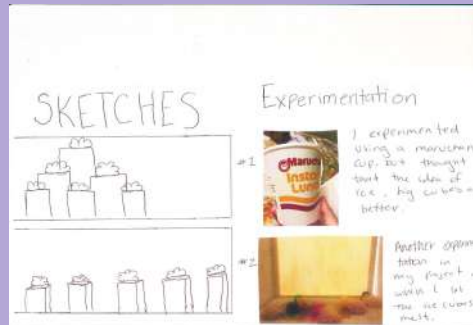 SKETCHES
Experimentation
#1
Maruch
Instant
Lunc
I experimented
using a maruchan
cup, but thought
that the idea of
ice, big cubes
better.
#2
Another experimen
tation in
my project
which I let
the ice cubes
melt.